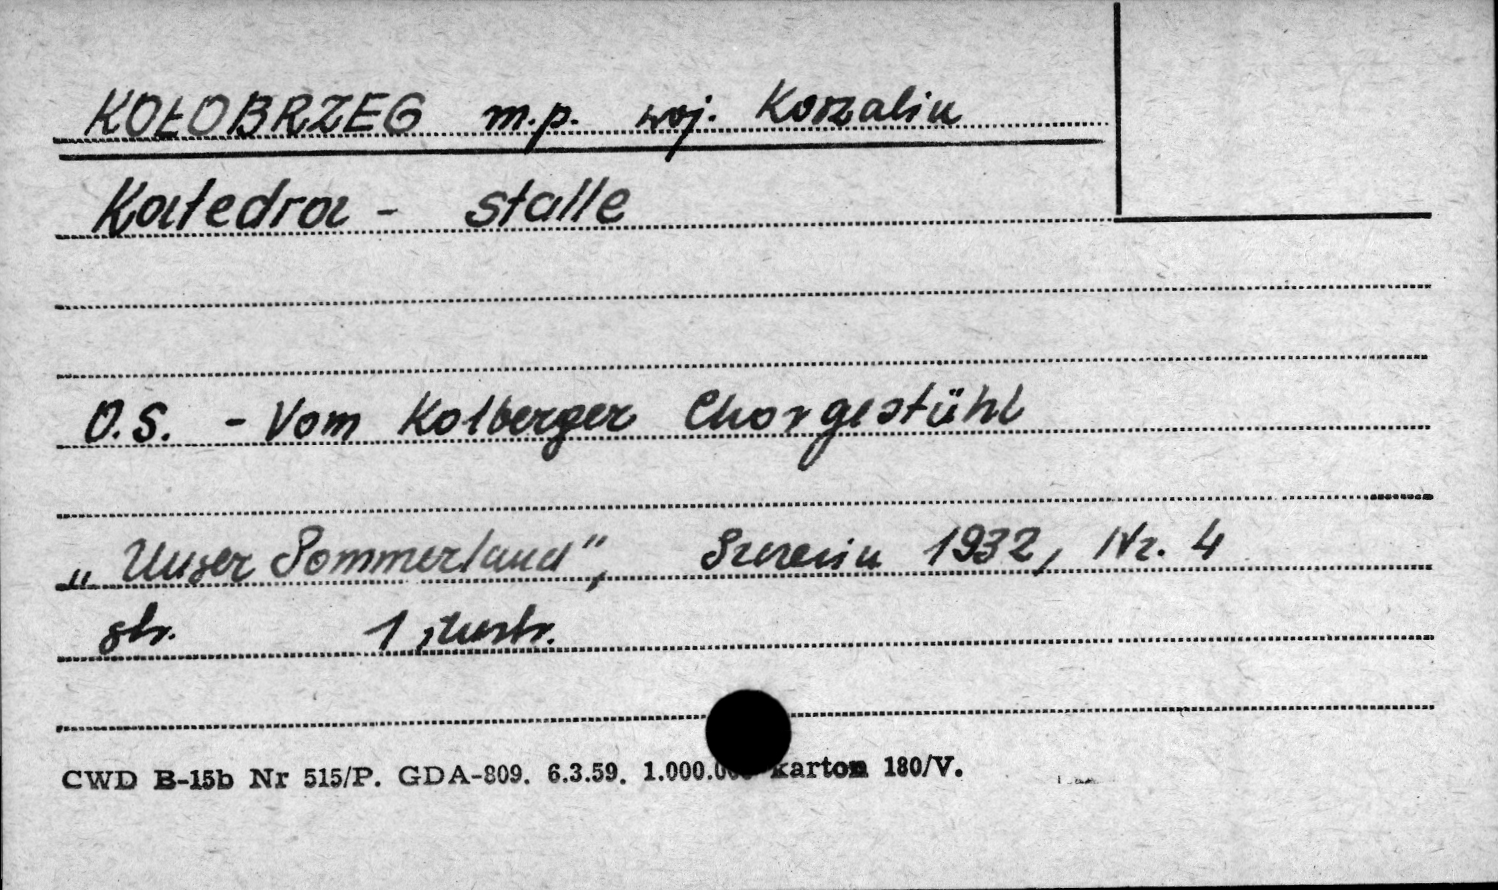 KOŁOBRZEG m.p. woj. Koszalin
Katedra - stalle
O.S. - Vom Kolberger Chorgestühl
„Unser Pommerland", Szczecin 1932, Nr. 4
str. 1 ilustr.
CWD B-15b Nr 515/P. GDA-809. 6.3.59. 1.000.000 karton 180/V.